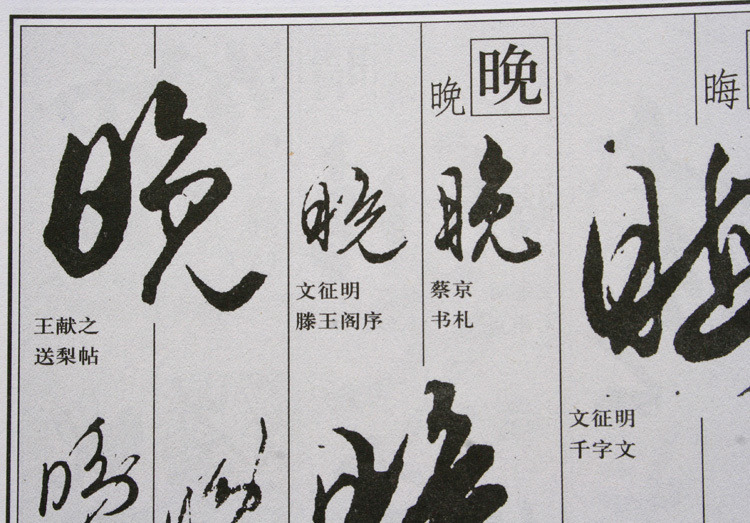 晦
晚
晚
晚
蔡京
书札
晚
文征明
滕王阁序
晚
王献之
送梨帖
晦
文征明
千字文